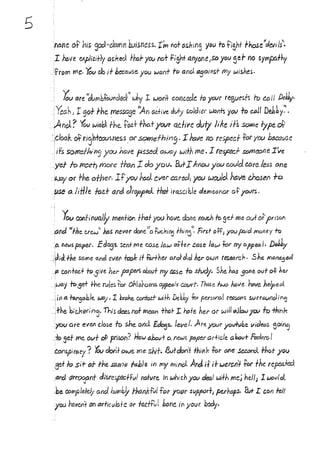 5
none of his god-damn buisness. I'm not asking you to fight those "devils".
I have explicitly asked that you not fight anyone, so you get no sympathy
from me. You do it because you want to and against my wishes.
You are "dumbfounded" why I won't concede to your requests to call Debby.
Yeah, I got the message "An active duty soldier wants you to call Debby".
And? You wield the fact that your active duty like it's some type of
cloak of rightousness or something. I have no respect for you because
it's something you have passed away with me. I respect someone I've
yet to meet, more than I do you. But I know you could care less one
way or the other. If you had ever cared, you would have chosen to
use a little tact and dropped that irascible demeanor of yours.
You continually mention that you have done much to get me out of prison
and "the crew" has never done "a fucking thing". First off, you paid money to
a news paper. Edags sent me case law after case law for my appeal. Debby
did the same and even took it further and did her own research. She managed
a contact to give her papers about my case to study. She has gone out of her
way to get the rules for Oklahoma appeals court. Those two have have helped
in a tangable way. I broke contact with Debby for personal reasons surrounding
the bickering. This does not mean that I hate her or will allow you to think
you are even close to she and Edags level. Are your youtube videos going
to get me out of prison? How about a news paper article about Federal
conspiracy? You don't owe me shit. But don't think for one second that you
get to sit at the same table in my mind. And if it weren't for the repeated
and arrogant disrespectful nature in which you deal with me; hell, I would
be completely and humbly thankful for your support, perhaps. But I can tell
you haven't an articulate or tactful bone in your body.